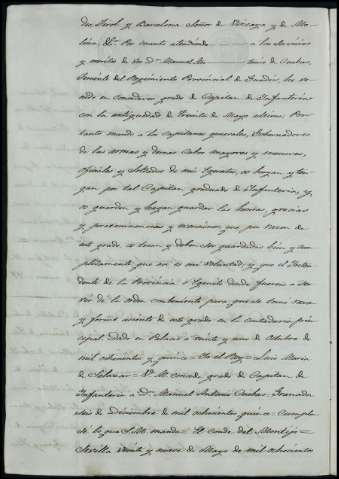 del Tirol y Barcelona Señor de Vizcaya y de Mo-
lina &.ª Por cuanto atendiendo a los servicios
y meritos de vos D.n Manuel An tonio Cuebar,
Teniente del Regimiento Provincial de he ve-
nido en concederos grado de Capitan de Infanteria
con la antiguedad de treinta de Mayo ultimo. Por
tanto mando a los Capitanes generales, Gobernadores
de las armas y demas Cabos mayores y menores,
oficiales y Soldados de mis Egercitos, os hayan y ten-
gan por tal Capitan graduado de Infanteria, y
os guarden, y hagan guardar las honras, gracias
y preeminencias y exenciones que por razon de
este grado os tocan y deben ser guardadas bien y cum-
plidamente que asi es mi voluntad, y que el Inten-
dente de la Provincia o Egercito donde fuereis a ser-
vir de la orden conbeniente para que se tome razon
y forme asiento de este grado en la contaduria prin-
cipal. Dado en Palacio a veinte y uno de Octubre de
mil ochocientos y quince = Yo el Rey = Luis Maria
de Salazar = V. M. concede grado de Capitan de
Infanteria a D.n Manuel Antonio Cuebar. Granada
seis de Diciembre de mil ochocientos quince Cumpla-
se lo que S.M. manda = El conde del Montijo =
Sevilla veinte y nueve de Mayo de mil ochocientos